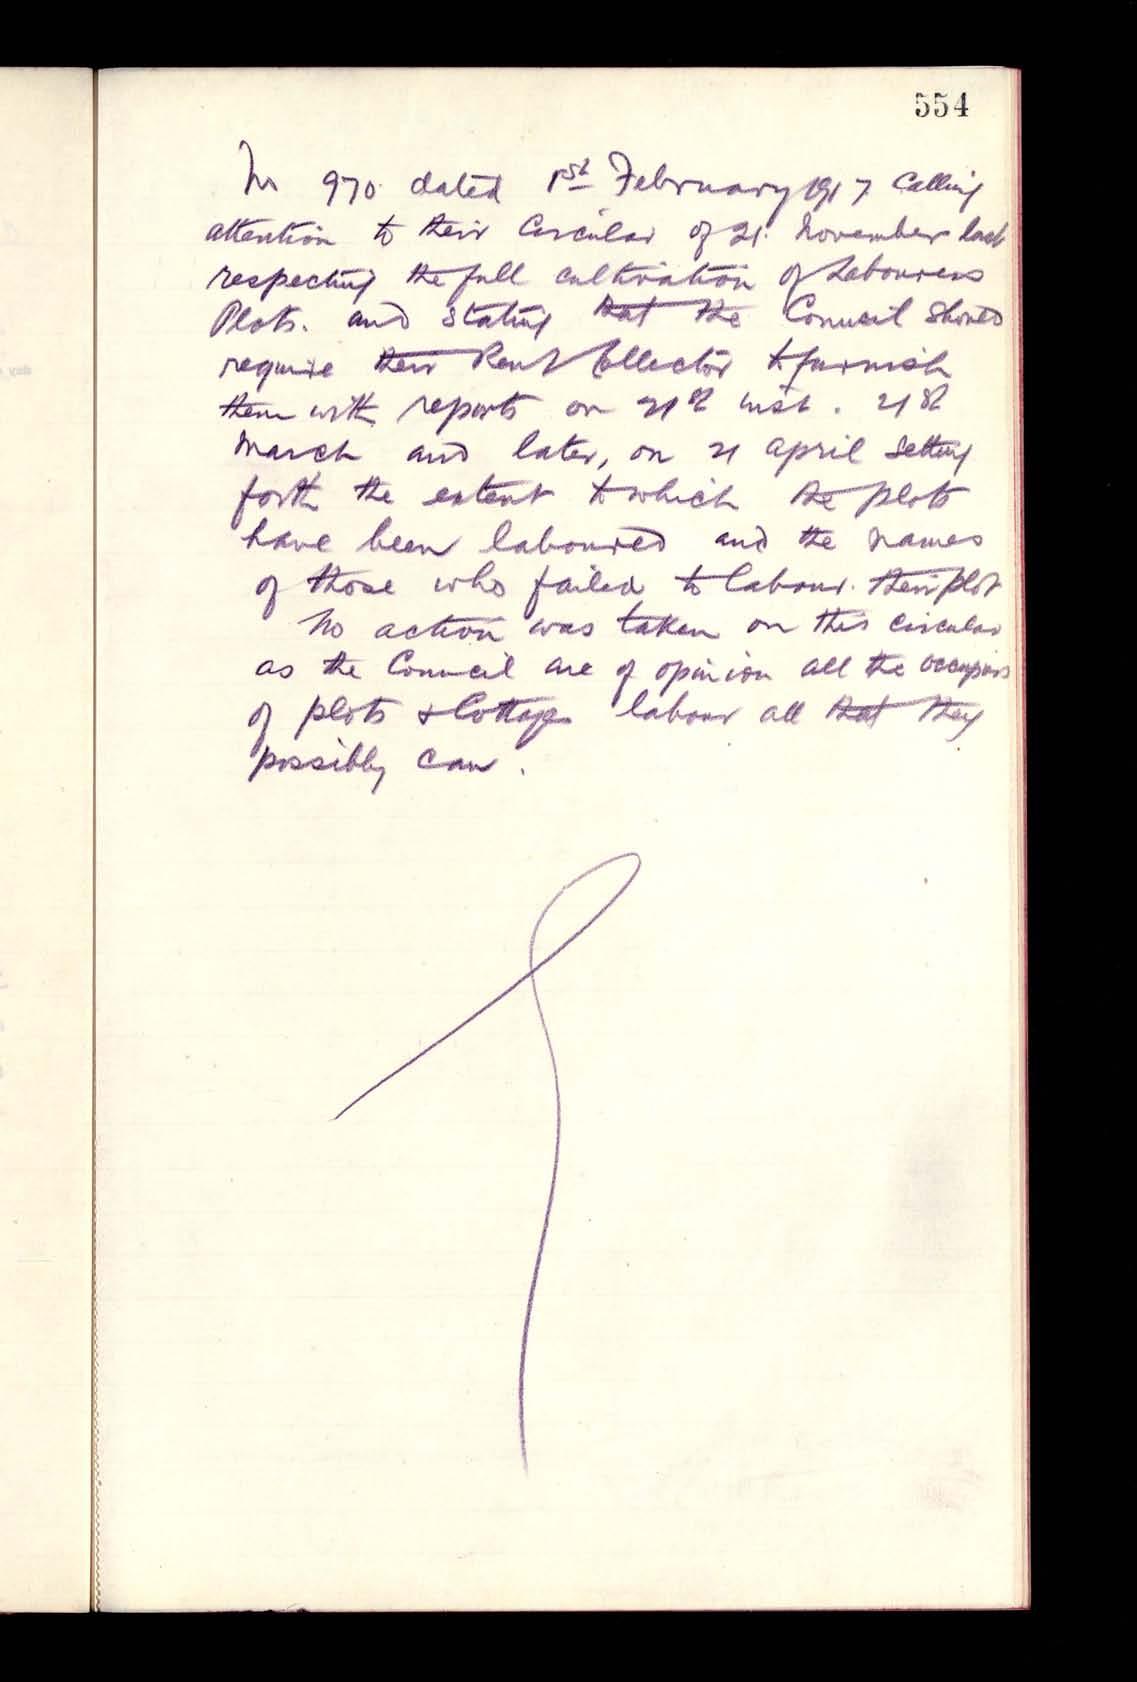 554
No 970 dated 1st February 1917 Calling
attention to their Circular of 21. November last
respecting the full cultivation of Labourers
Plots. and stating that the Council should
require their Rent Collector to furnish
them with reports on 21st inst. 21st
March and later, on 21 April setting
forth the extent to which the plots
have been laboured and the names
of those who failed to labour. their plot
No action was taken on this circular
as the Council are of opinion all the occupiers
of plots & Cottages labour all that they
possibly can.